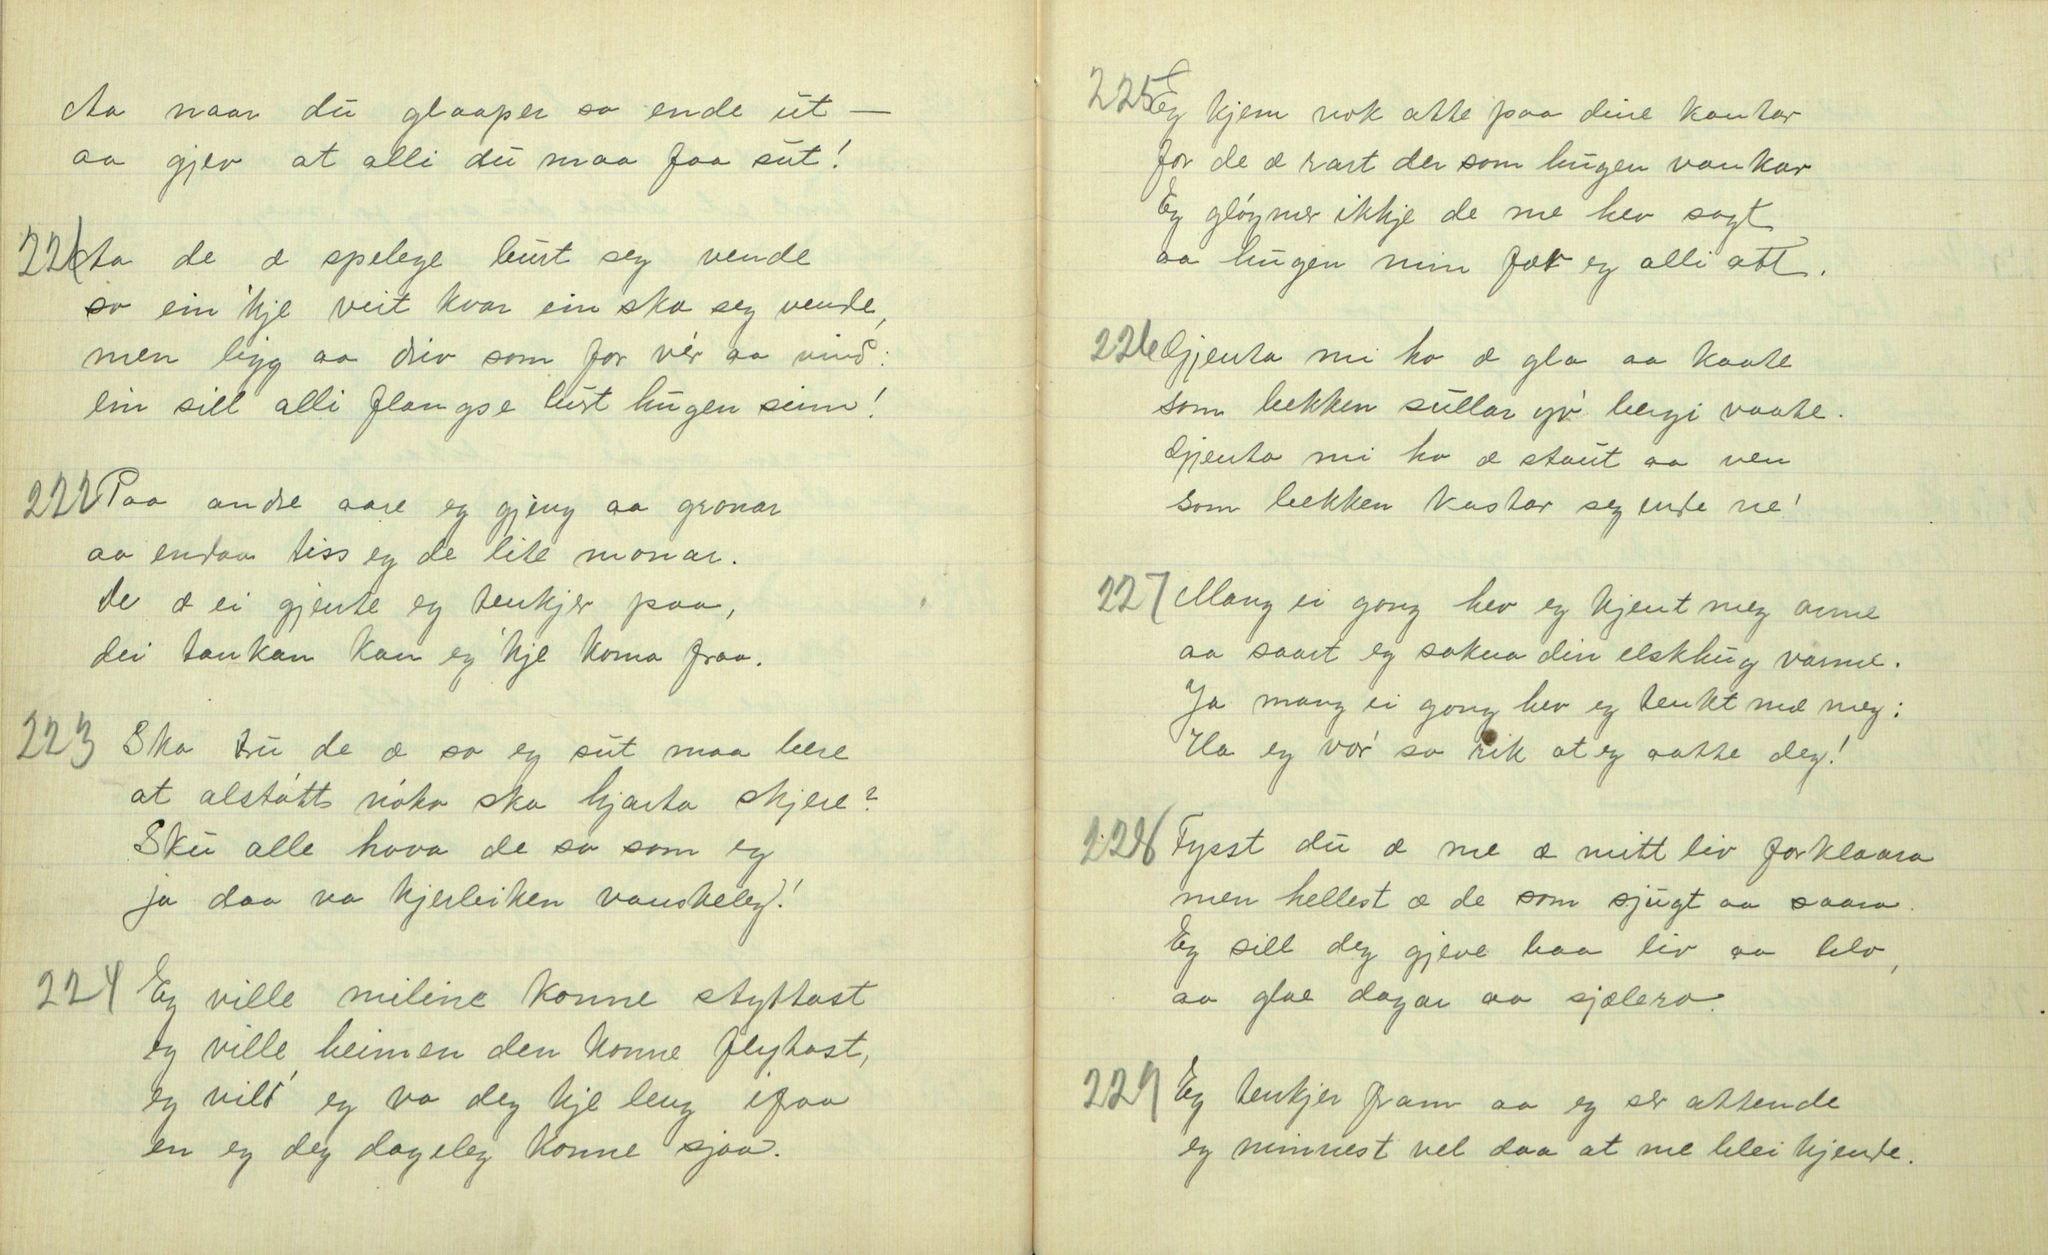 Aa naar du glaaper so ende ut —
aa gjev at alli du maa faa sut!
221 Aa de æ spelege burt seg vende
so ein 'kje veit kvar ein ska seg vende,
men ligg aa driv som for vér aa vind:
ein sill alli flangse burt hugen sinn!
222 Paa andre aare eg gjeng aa gronar
aa endaa tiss eg de lite monar.
De æ ei gjente eg tenkjer paa,
dei tankan kan eg 'kje koma fraa.
223 Ska tru de æ so eg sut maa bere
at alstøtt nóko ska hjarta skjere?
Sku alle hava de so som eg
ja daa va kjerleiken vanskeleg!
224 Eg ville miline konne styttast
eg ville heimen den konne flytast,
eg vild' eg va deg kje leng ifraa
en eg deg dageleg konne sjaa.
225 Eg kjem nok atte paa dine kantar
for de æ rart der som hugen vankar
Eg gløymer ikkje de me hev sagt
aa hugen min fær eg alli att.
226 Gjenta mi ho æ gla aa kaate
som bekken sullar yv' bergi vaate.
Gjenta mi ho æ staut aa ven
som bekken kastar seg ende ne!
227 Mang ei gong hev eg kjent meg arme
aa saart eg sakna din elskhug varme.
Ja mang ei gong hev eg tenkt mæ meg:
Ha eg vor' so rik at eg aatte deg!
228 Fysst du æ me æ mitt liv forklaara
men hellest æ de som sjugt aa saara.
Eg sill deg gjeve baa liv aa blo,
aa glae dagar aa sjælero.
229 Eg tenkjer fram aa eg ser attende
eg minnest vel daa at me blei kjende.